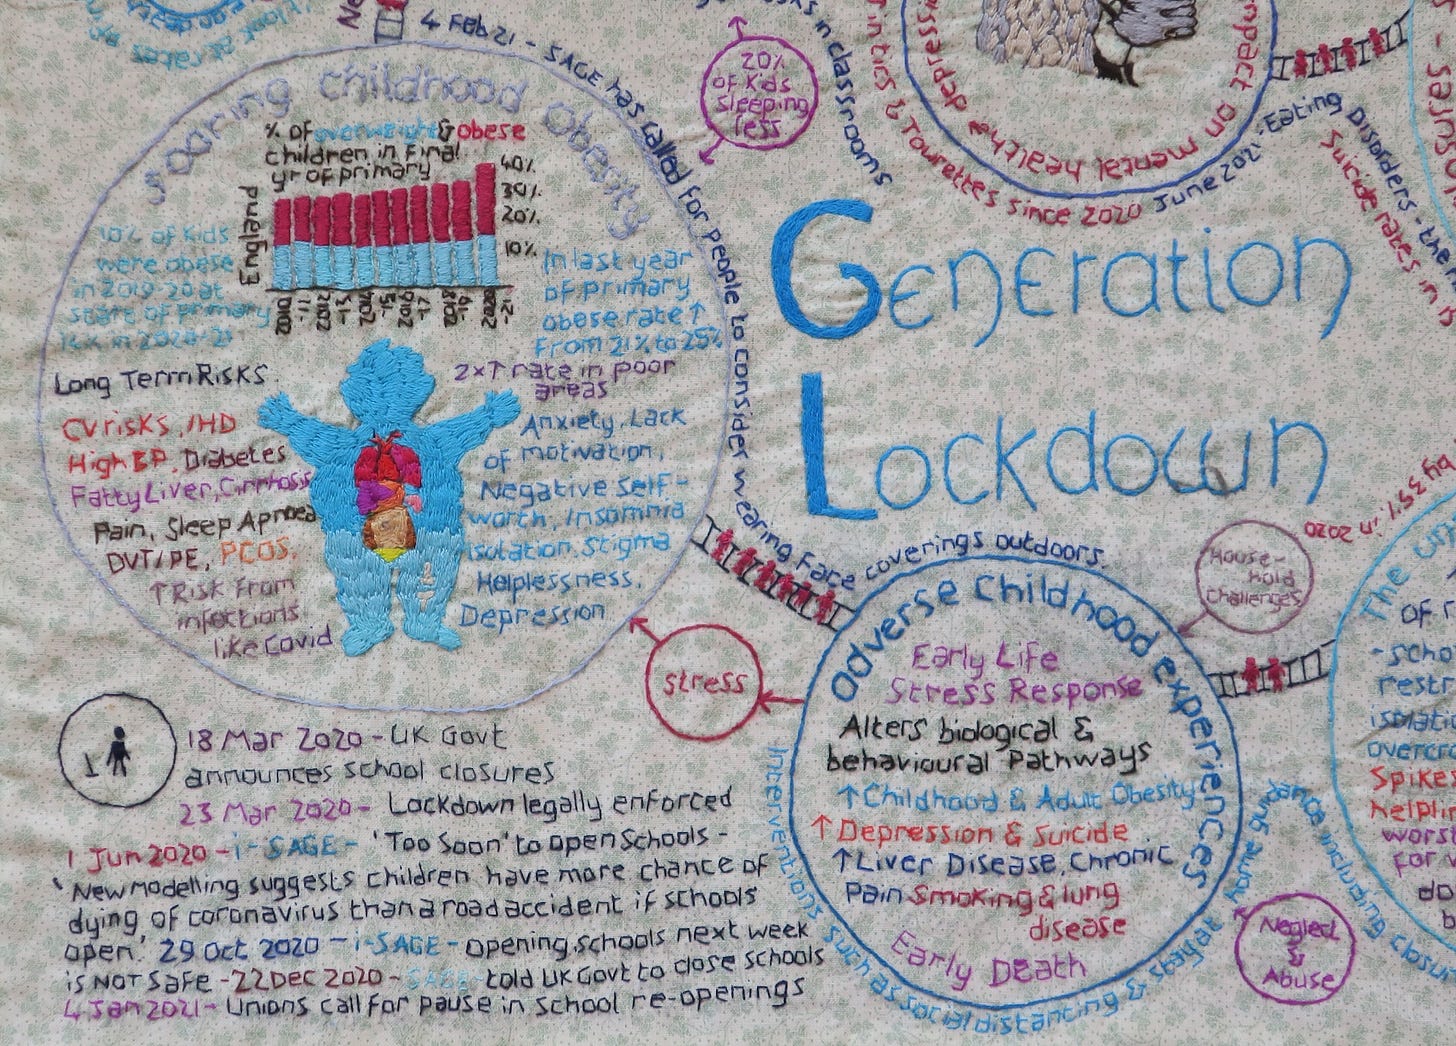 4 Feb 21 - SAGE has called for people to consider wearing face coverings outdoors.
20%
of Kids
sleeping
less
in classrooms
in tics & Tourettes since 2020
impact on mental health
June 2021 - Eating Disorders - the
Suicide rates in
Soaring childhood obesity
% of overweight & obese
children in final
yr of primary
40%
30%
20%
10%
England
10% of Kids
were obese
in 2019-20 at
start of primary
14% in 2020-21
In last year
of primary
obese rate ↑
From 21% to 25%
2x↑ rate in poor
areas
Long Term Risks
CV risks, IHD
High BP, Diabetes
Fatty Liver, Cirrhosis
Pain, Sleep Apnoea
DVT/PE, PCOS.
↑Risk from
infections
like Covid
Anxiety, Lack
of motivation,
Negative self-
worth, Insomnia
Isolation, Stigma
Helplessness,
Depression
Generation
Lockdown
by 35% in 2020
House-
hold
Challenges
stress
Adverse Childhood experiences
Early Life
Stress Response
Alters biological &
behavioural Pathways
↑Childhood & Adult Obesity
↑Depression & Suicide
↑Liver Disease, Chronic
Pain Smoking & lung
disease
Early Death
Interventions such as social distancing & stay at home
including closu
Neglect
&
Abuse
The
of
-scho
restr
isolat
overcr
Spike
helplin
worst
for
do
18 Mar 2020 - UK Govt
announces school closures
23 Mar 2020 - Lockdown legally enforced
1 Jun 2020 - i-SAGE - 'Too Soon' to open Schools -
'New modelling suggests children have more chance of
dying of coronavirus than a road accident if schools
open.' 29 Oct 2020 - i-SAGE - opening schools next week
is NOT Safe - 22 Dec 2020 - SAGE - told UK Govt to close schools
4 Jan 2021 - Unions call for pause in school re-openings